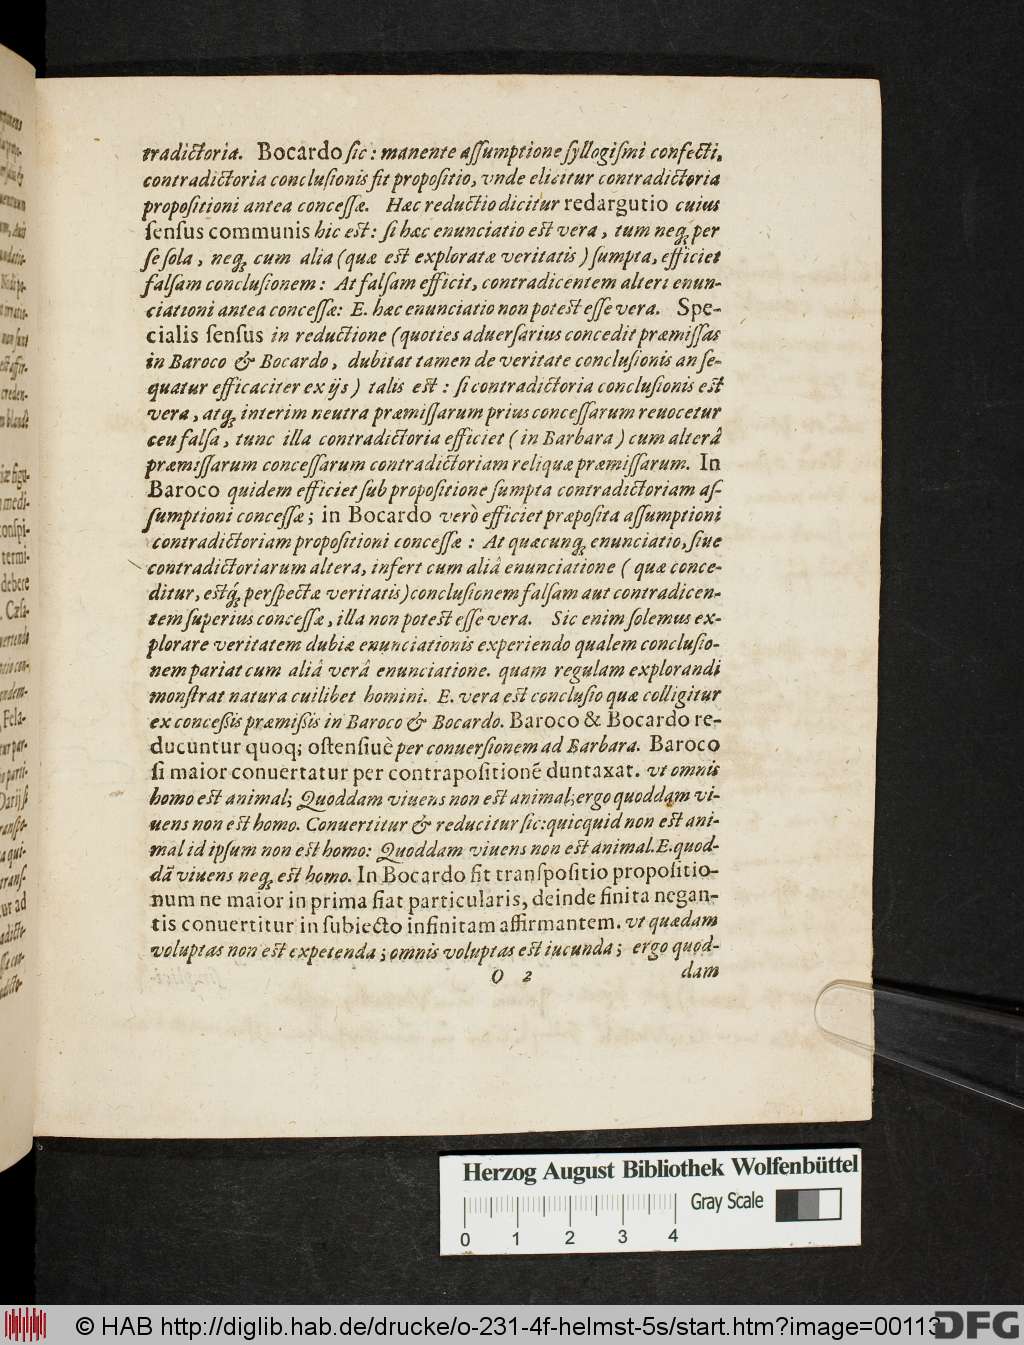 tradictoria. Bocardo sic: manente assumptione syllogismi confecti,
contradictoria conclusionis fit propositio, vnde elicitur contradictoria
propositioni antea concessæ. Hæc reductio dicitur redargutio cuius
sensus communis hic est: si hæc enunciatio est vera, tum neq; per
se sola, neq; cum alia (quæ est exploratæ veritatis) sumpta, efficiet
falsam conclusionem: At falsam efficit, contradicentem alteri enun-
ciationi antea concessæ: E. hæc enunciatio non potest esse vera. Spe-
cialis sensus in reductione (quoties aduersarius concedit præmissas
in Baroco & Bocardo, dubitat tamen de veritate conclusionis an se-
quatur efficaciter ex ijs) talis est: si contradictoria conclusionis est
vera, atq; interim neutra præmissarum prius concessarum reuocetur
ceu falsa, tunc illa contradictoria efficiet (in Barbara) cum alterâ
præmissarum concessarum contradictoriam reliquæ præmissarum. In
Baroco quidem efficiet sub propositione sumpta contradictoriam as-
sumptioni concessæ; in Bocardo verò efficiet præposita assumptioni
contradictoriam propositioni concessæ: At quæcunq; enunciatio, siue
contradictoriarum altera, infert cum aliâ enunciatione (quæ conce-
ditur, estq́; perspectæ veritatis) conclusionem falsam aut contradicen-
tem superius concessæ, illa non potest esse vera. Sic enim solemus ex-
plorare veritatem dubiæ enunciationis experiendo qualem conclusio-
nem pariat cum aliâ verâ enunciatione. quam regulam explorandi
monstrat natura cuilibet homini. E. vera est conclusio quæ colligitur
ex concessis præmissis in Baroco & Bocardo. Baroco & Bocardo re-
ducuntur quoq; ostensiuè per conuersionem ad Barbara. Baroco
si maior conuertatur per contrapositionẽ duntaxat. vt omnis
homo est animal; Quoddam viuens non est animal; ergo quoddam vi-
uens non est homo. Conuertitur & reducitur sic: quicquid non est ani-
mal id ipsum non est homo: Quoddam viuens non est animal. E. quod-
dã viuens neq; est homo. In Bocardo fit transpositio propositio-
num ne maior in prima fiat particularis, deinde finita negan-
tis conuertitur in subiecto infinitam affirmantem. vt quædam
voluptas non est expetenda; omnis voluptas est iucunda; ergo quod-
O 2 dam
Herzog August Bibliothek Wolfenbüttel
Gray Scale
0 1 2 3 4
© HAB http://diglib.hab.de/drucke/o-231-4f-helmst-5s/start.htm?image=00113
DFG